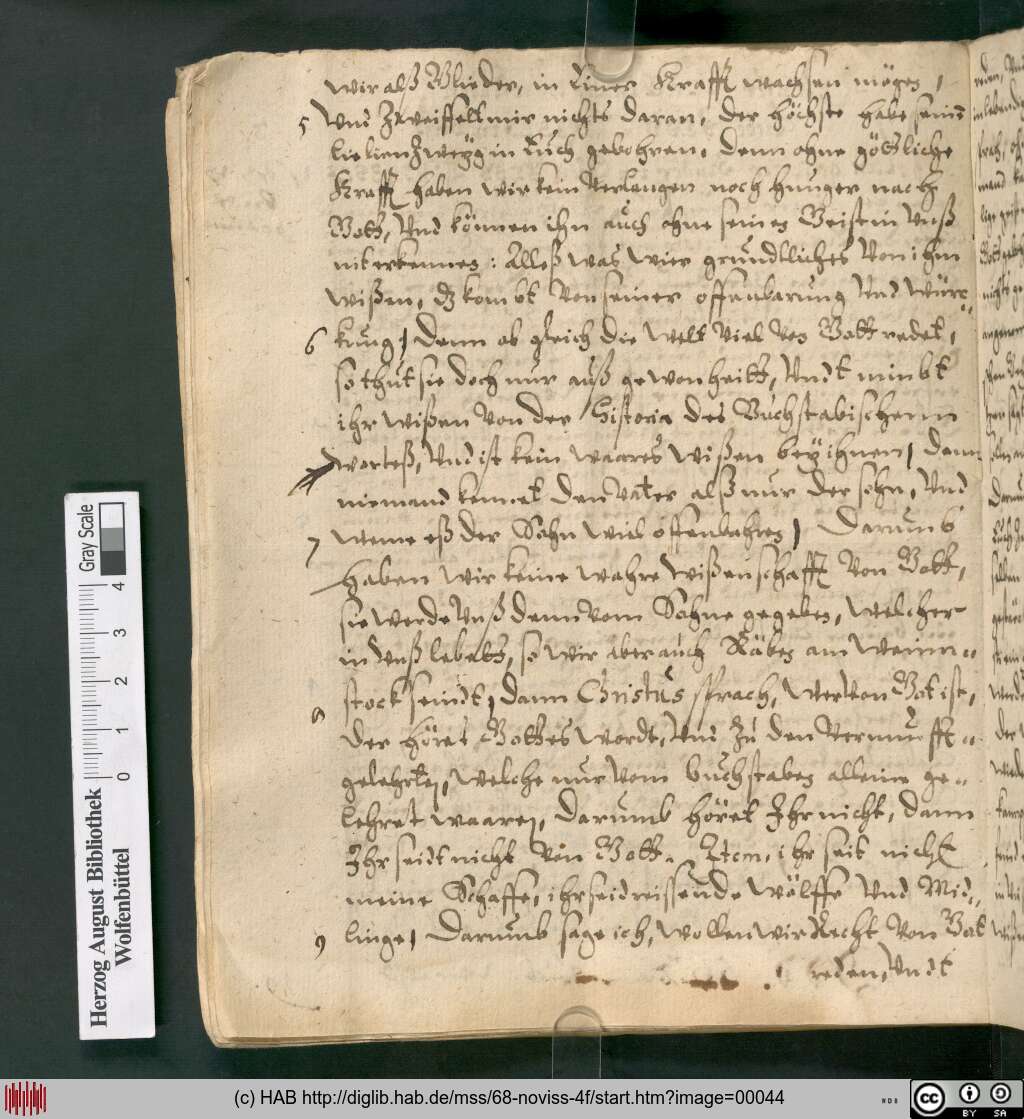 wir alß Glieder, in einer Krafft wachsen mögen,
5 Vnd Zweiffelt mir nichts daran, der höchste habe sein
lielien Zweyg in Euch gebohren, denn ohne göttliche
Krafft haben wir kein Verlangen noch hunger nach
Gott, Vnd können ihn auch ohne seinen Geist in Vnß
nit erkennen: Alleß was wier gründtliches Von ihm
wißen, dz kombt Von seiner offenbarung Vnd würc=
6 kung, Denn ob gleich die Welt Viel von Gott redet,
so thut sie doch nur auß gewonheitt, Vndt nimbt
ihr wißen Von der Historia des Buchstabischenn
Worteß, Vnd ist kein waares wißen bey ihnen, Denn
niemand kennet den Vater alß nur der sohn, Vnd
7 weme eß der Sohn wiel offenbahren, Darumb
haben wir keine wahre wißenschafft Von Gott,
sie werde Vnß denn vom Sohne gegeben, welcher
in Vnß lebett, so wir aber auch Räben am Weinn=
stock seindt,
8 dann Christus sprach, Wer Von Got ist,
der höret Gottes wordt, Vnd Zu den Vernunfft=
gelehrten, welche nur Vom buchstaben allein ge=
lehret waaren, darumb höret Ihr nicht, dann
Ihr seidt nicht Von Gott. Item, ihr seit nicht
meine Schaffe, ihr seid reissende wölffe Vnd Mid=
9 linge, Darumb sage ich, wollen wir Recht Von Got
reden, Vndt
Gray Scale
0 1 2 3 4
Herzog August Bibliothek
Wolfenbüttel
(c) HAB http://diglib.hab.de/mss/68-noviss-4f/start.htm?image=00044
cc BY SA